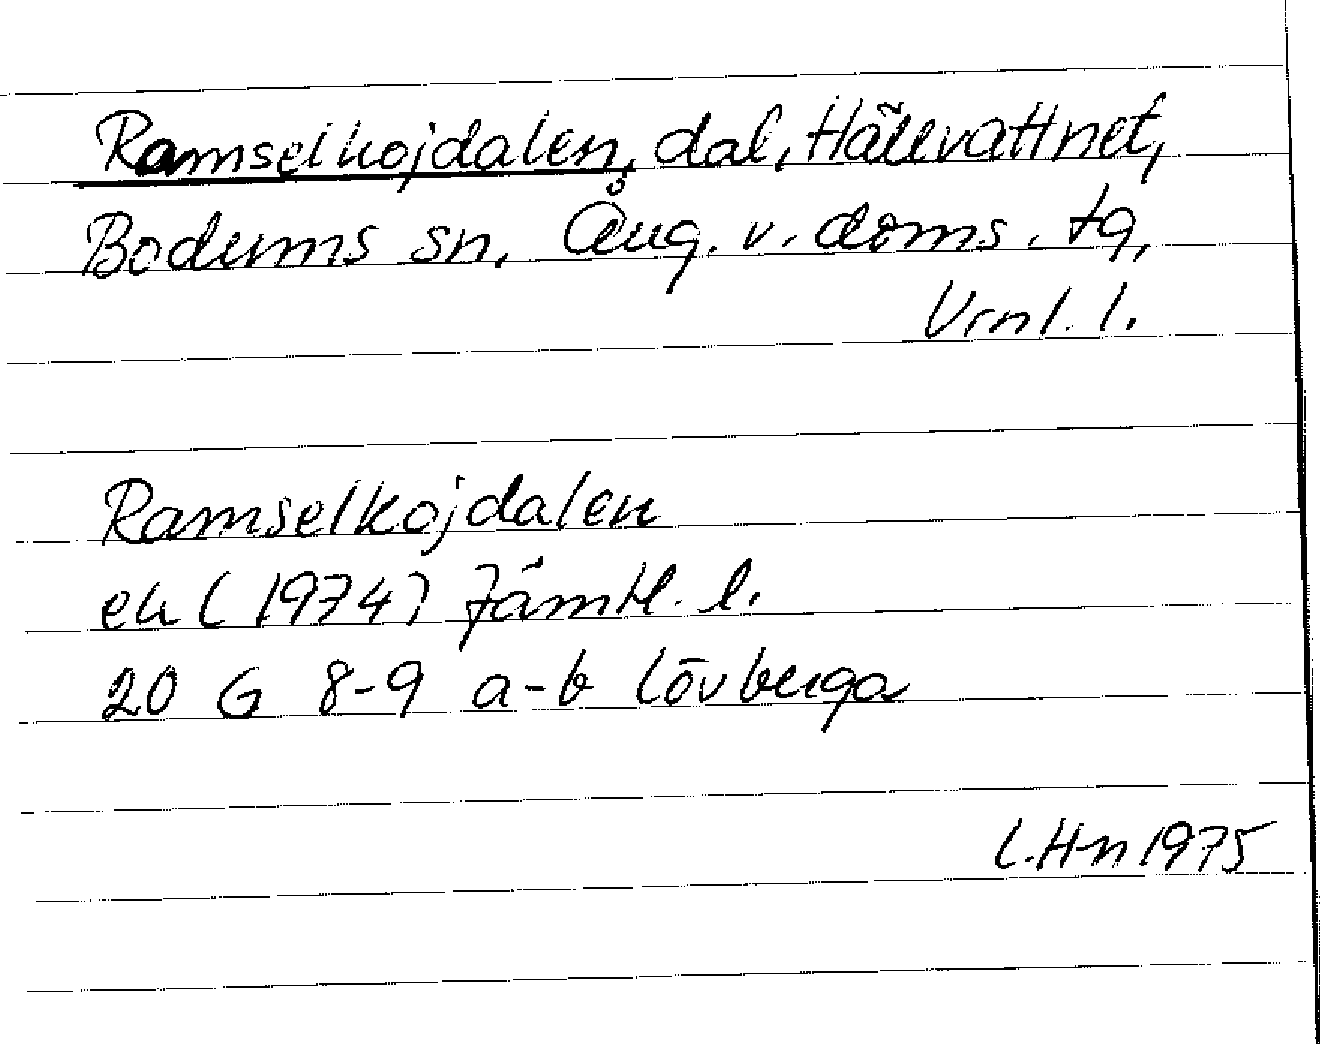 Ramselkojdalen, dal, Hällvattnet,
Bodums sn, Ång. v. doms. tg,
Vrnl. l.
Ramselkojdalen
ek (1974) Jämtl. l.
20 G 8-9 a-b Lövberga
L.H-n 1975